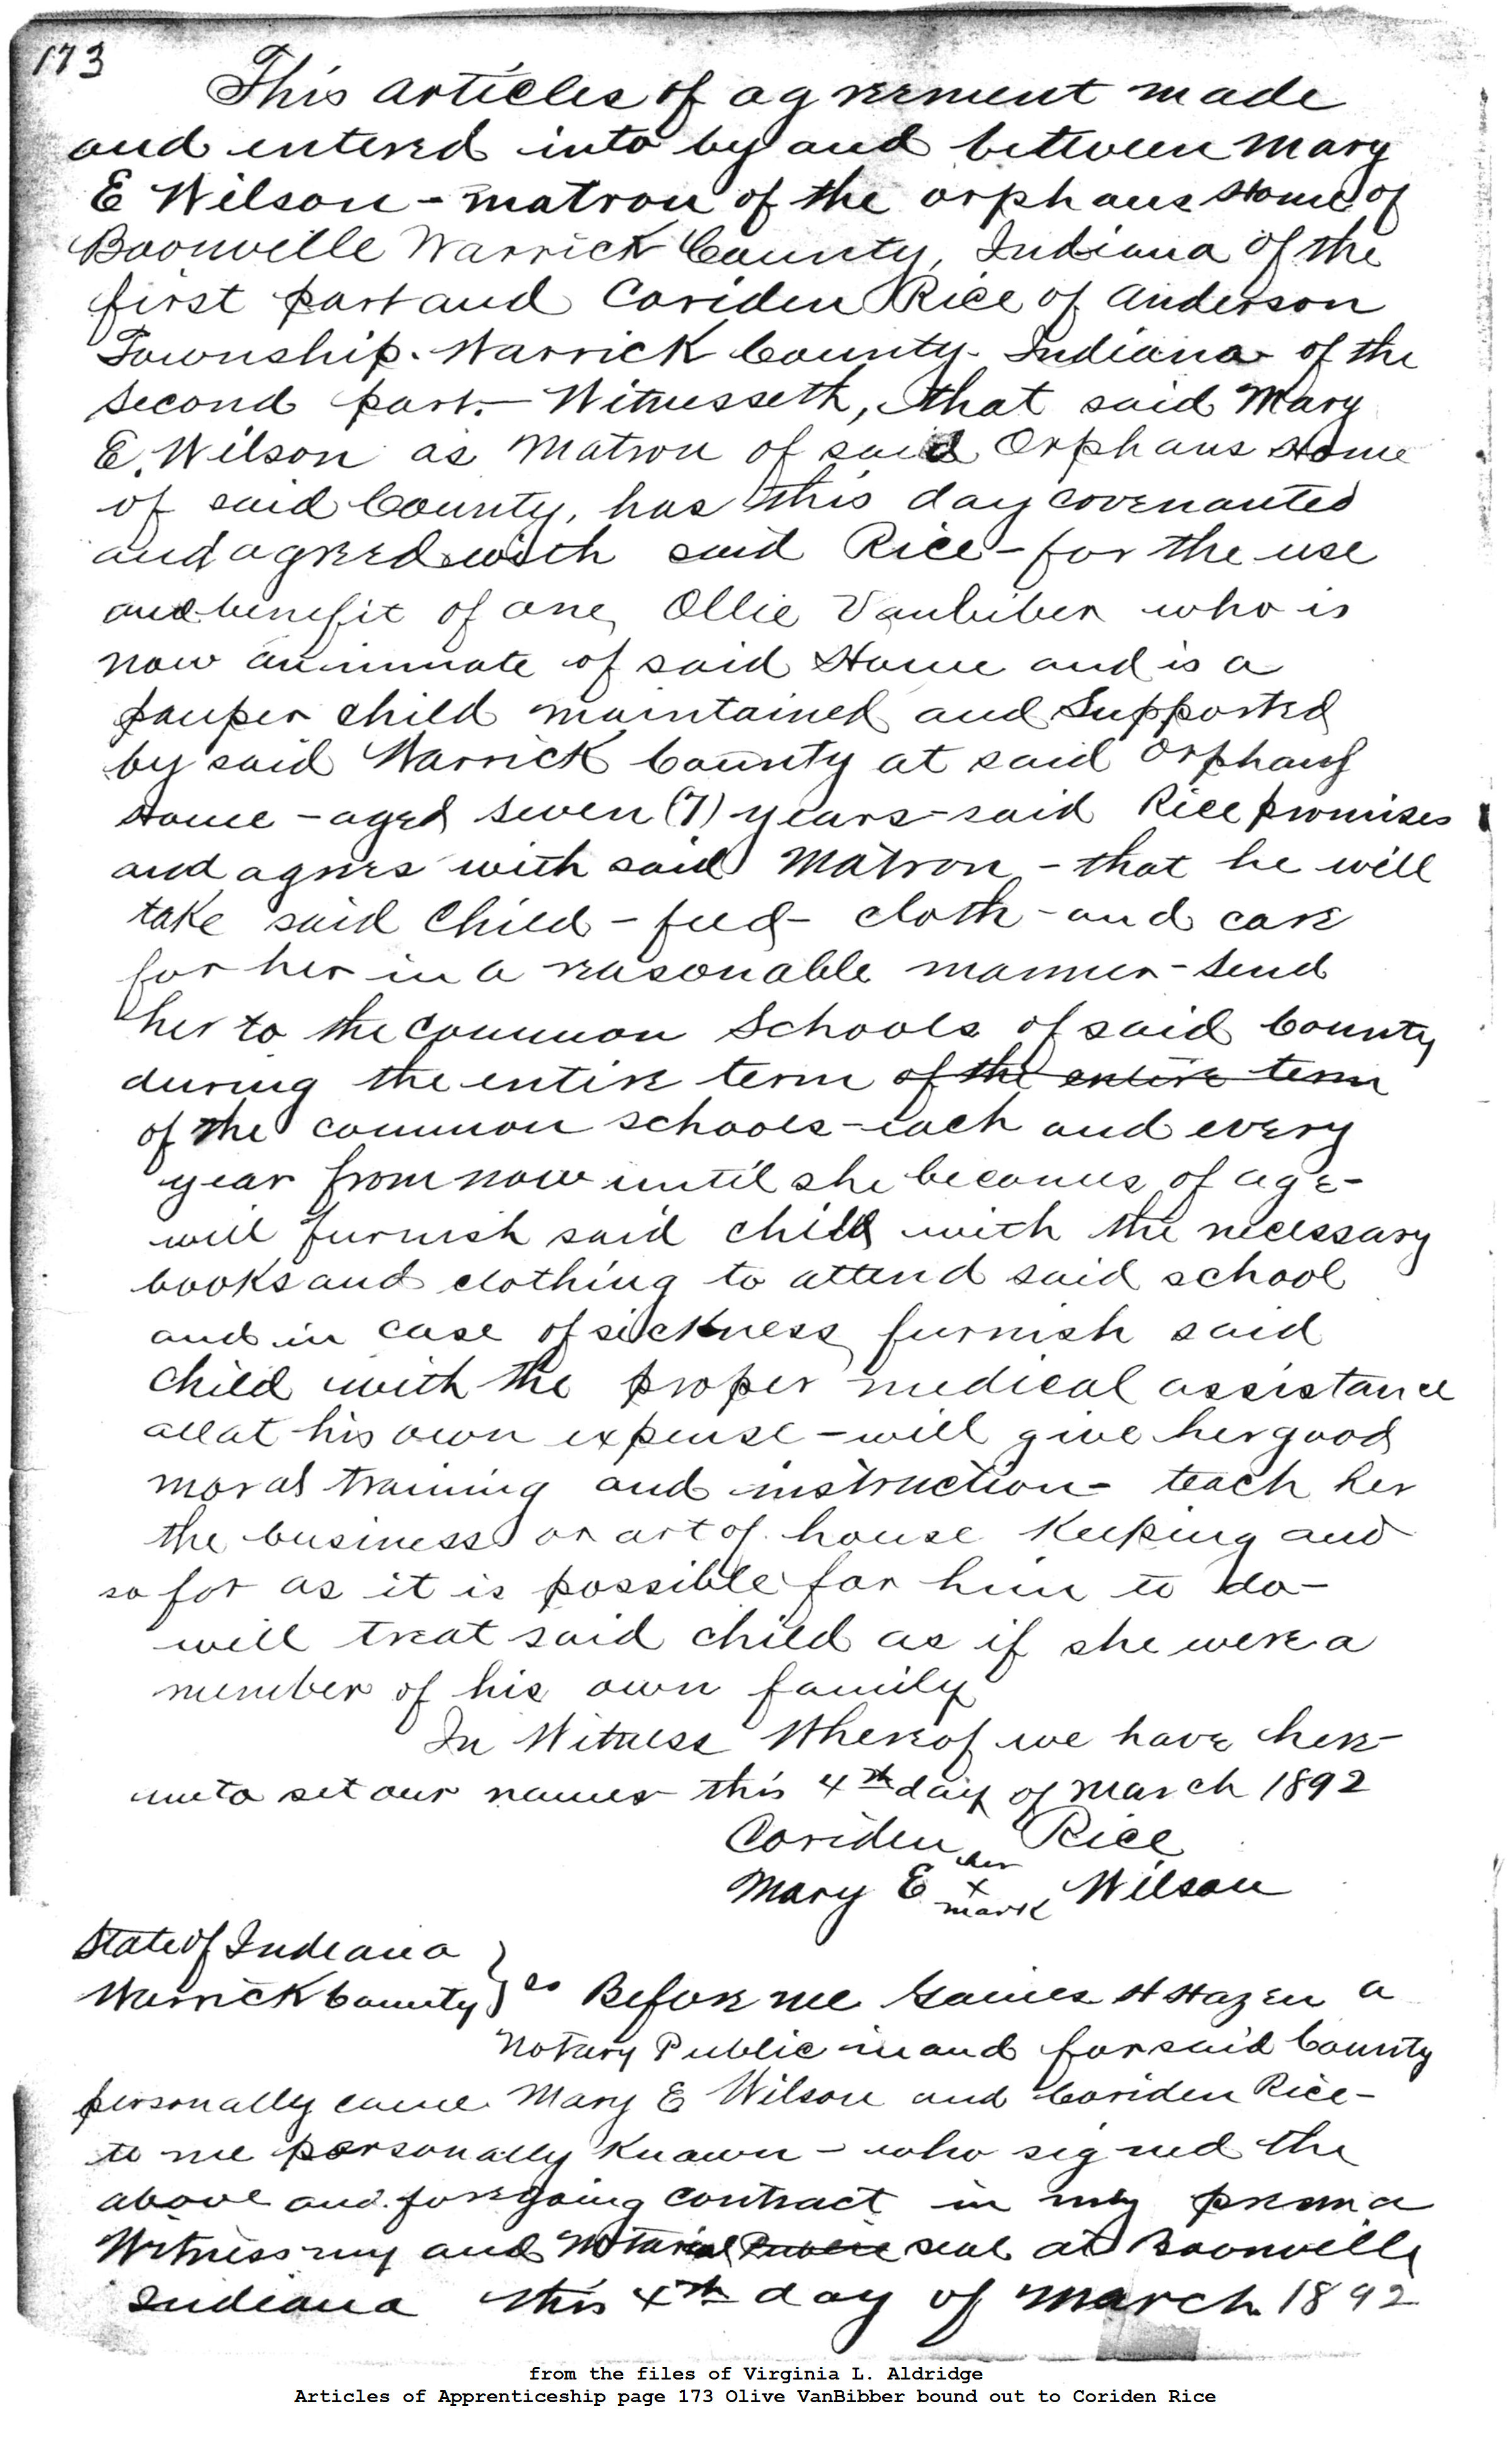 173
This articles of agreement made
and entered into by and between Mary
E Wilson - matron of the orphans Home of
Boonville Warrick County, Indiana of the
first part and Coriden Rice of Anderson
Township. Warrick County. Indiana of the
second part. - Witnesseth, that said Mary
E. Wilson as Matron of said Orphans Home
of said County, has this day covenanted
and agreed with said Rice - for the use
and benefit of one, Ollie Vanbiber who is
now an inmate of said Home and is a
pauper child maintained and Supported
by said Warrick County at said Orphans
Home - aged seven (7) years - said Rice promises
and agrees with said Matron - that he will
take said Child - feed - cloth - and care
for her in a reasonable manner - Send
her to the Common Schools of said County
during the entire term of the entire term
of the common schools - each and every
year from now until she becomes of age -
will furnish said child with the necessary
books and clothing to attend said school
and in case of sickness furnish said
Child with the proper medical assistance
all at his own expense - will give her good
moral training and instruction - teach her
the business or art of house Keeping and
so for as it is possible for him to do -
will treat said child as if she were a
member of his own family
In Witness Whereof we have here-
unto set our names this 4th day of March 1892
Coriden Rice
her
Mary E x Wilson
mark
State of Indiana
Warrick County } ss Before me Gaines H Hazen a
Notary Public in and for said County
personally came Mary E Wilson and Coriden Rice -
to me personally Known - who signed the
above and foregoing contract in my
Witness my and Notarial Public seal at Boonville
Indiana this 4th day of March 1892
from the files of Virginia L. Aldridge
Articles of Apprenticeship page 173 Olive VanBibber bound out to Coriden Rice